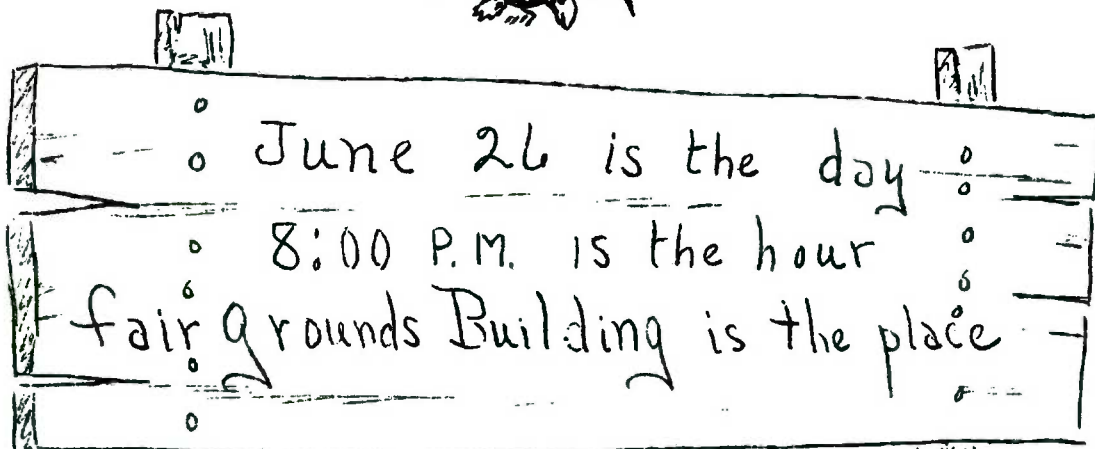 June 26 is the day
8:00 P.M. is the hour
fairgrounds Building is the place